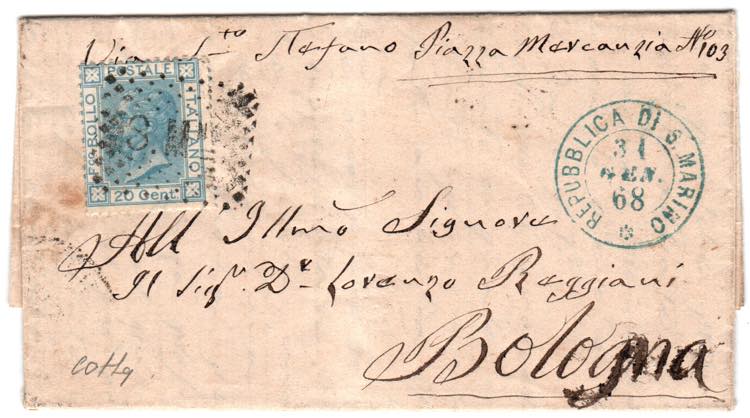 Via Sto Stefano Piazza Mercanzia No 103
FCO BOLLO
POSTALE
ITALIANO
20 Cent.
REPUBBLICA DI S. MARINO
31
GEN.
68
All Illmo Signore
Il Sigr. Dr. Lorenzo Reggiani
Bologna